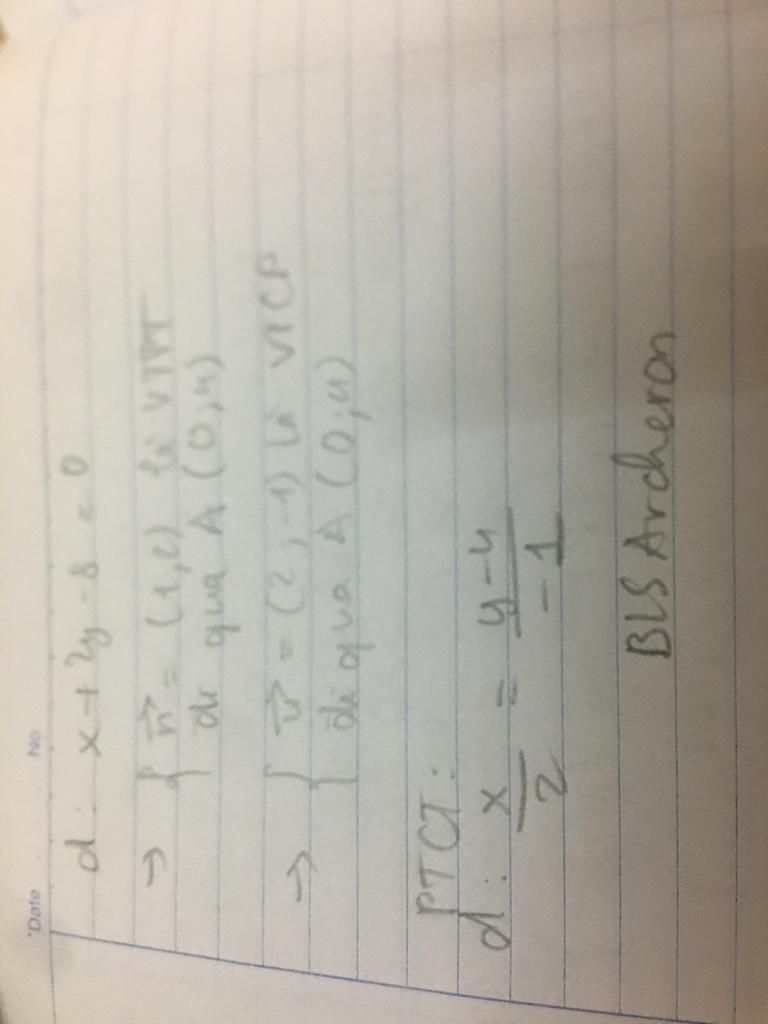 Date No
d: x + 2y - 8 = 0
→ { n⃗ = (1,2) là VTPT
đi qua A (0;4)
→ { u⃗ = (2;-1) là VTCP
đi qua A (0;4)
PTCT:
d: x/2 = y-4/-1
BLS Archeron